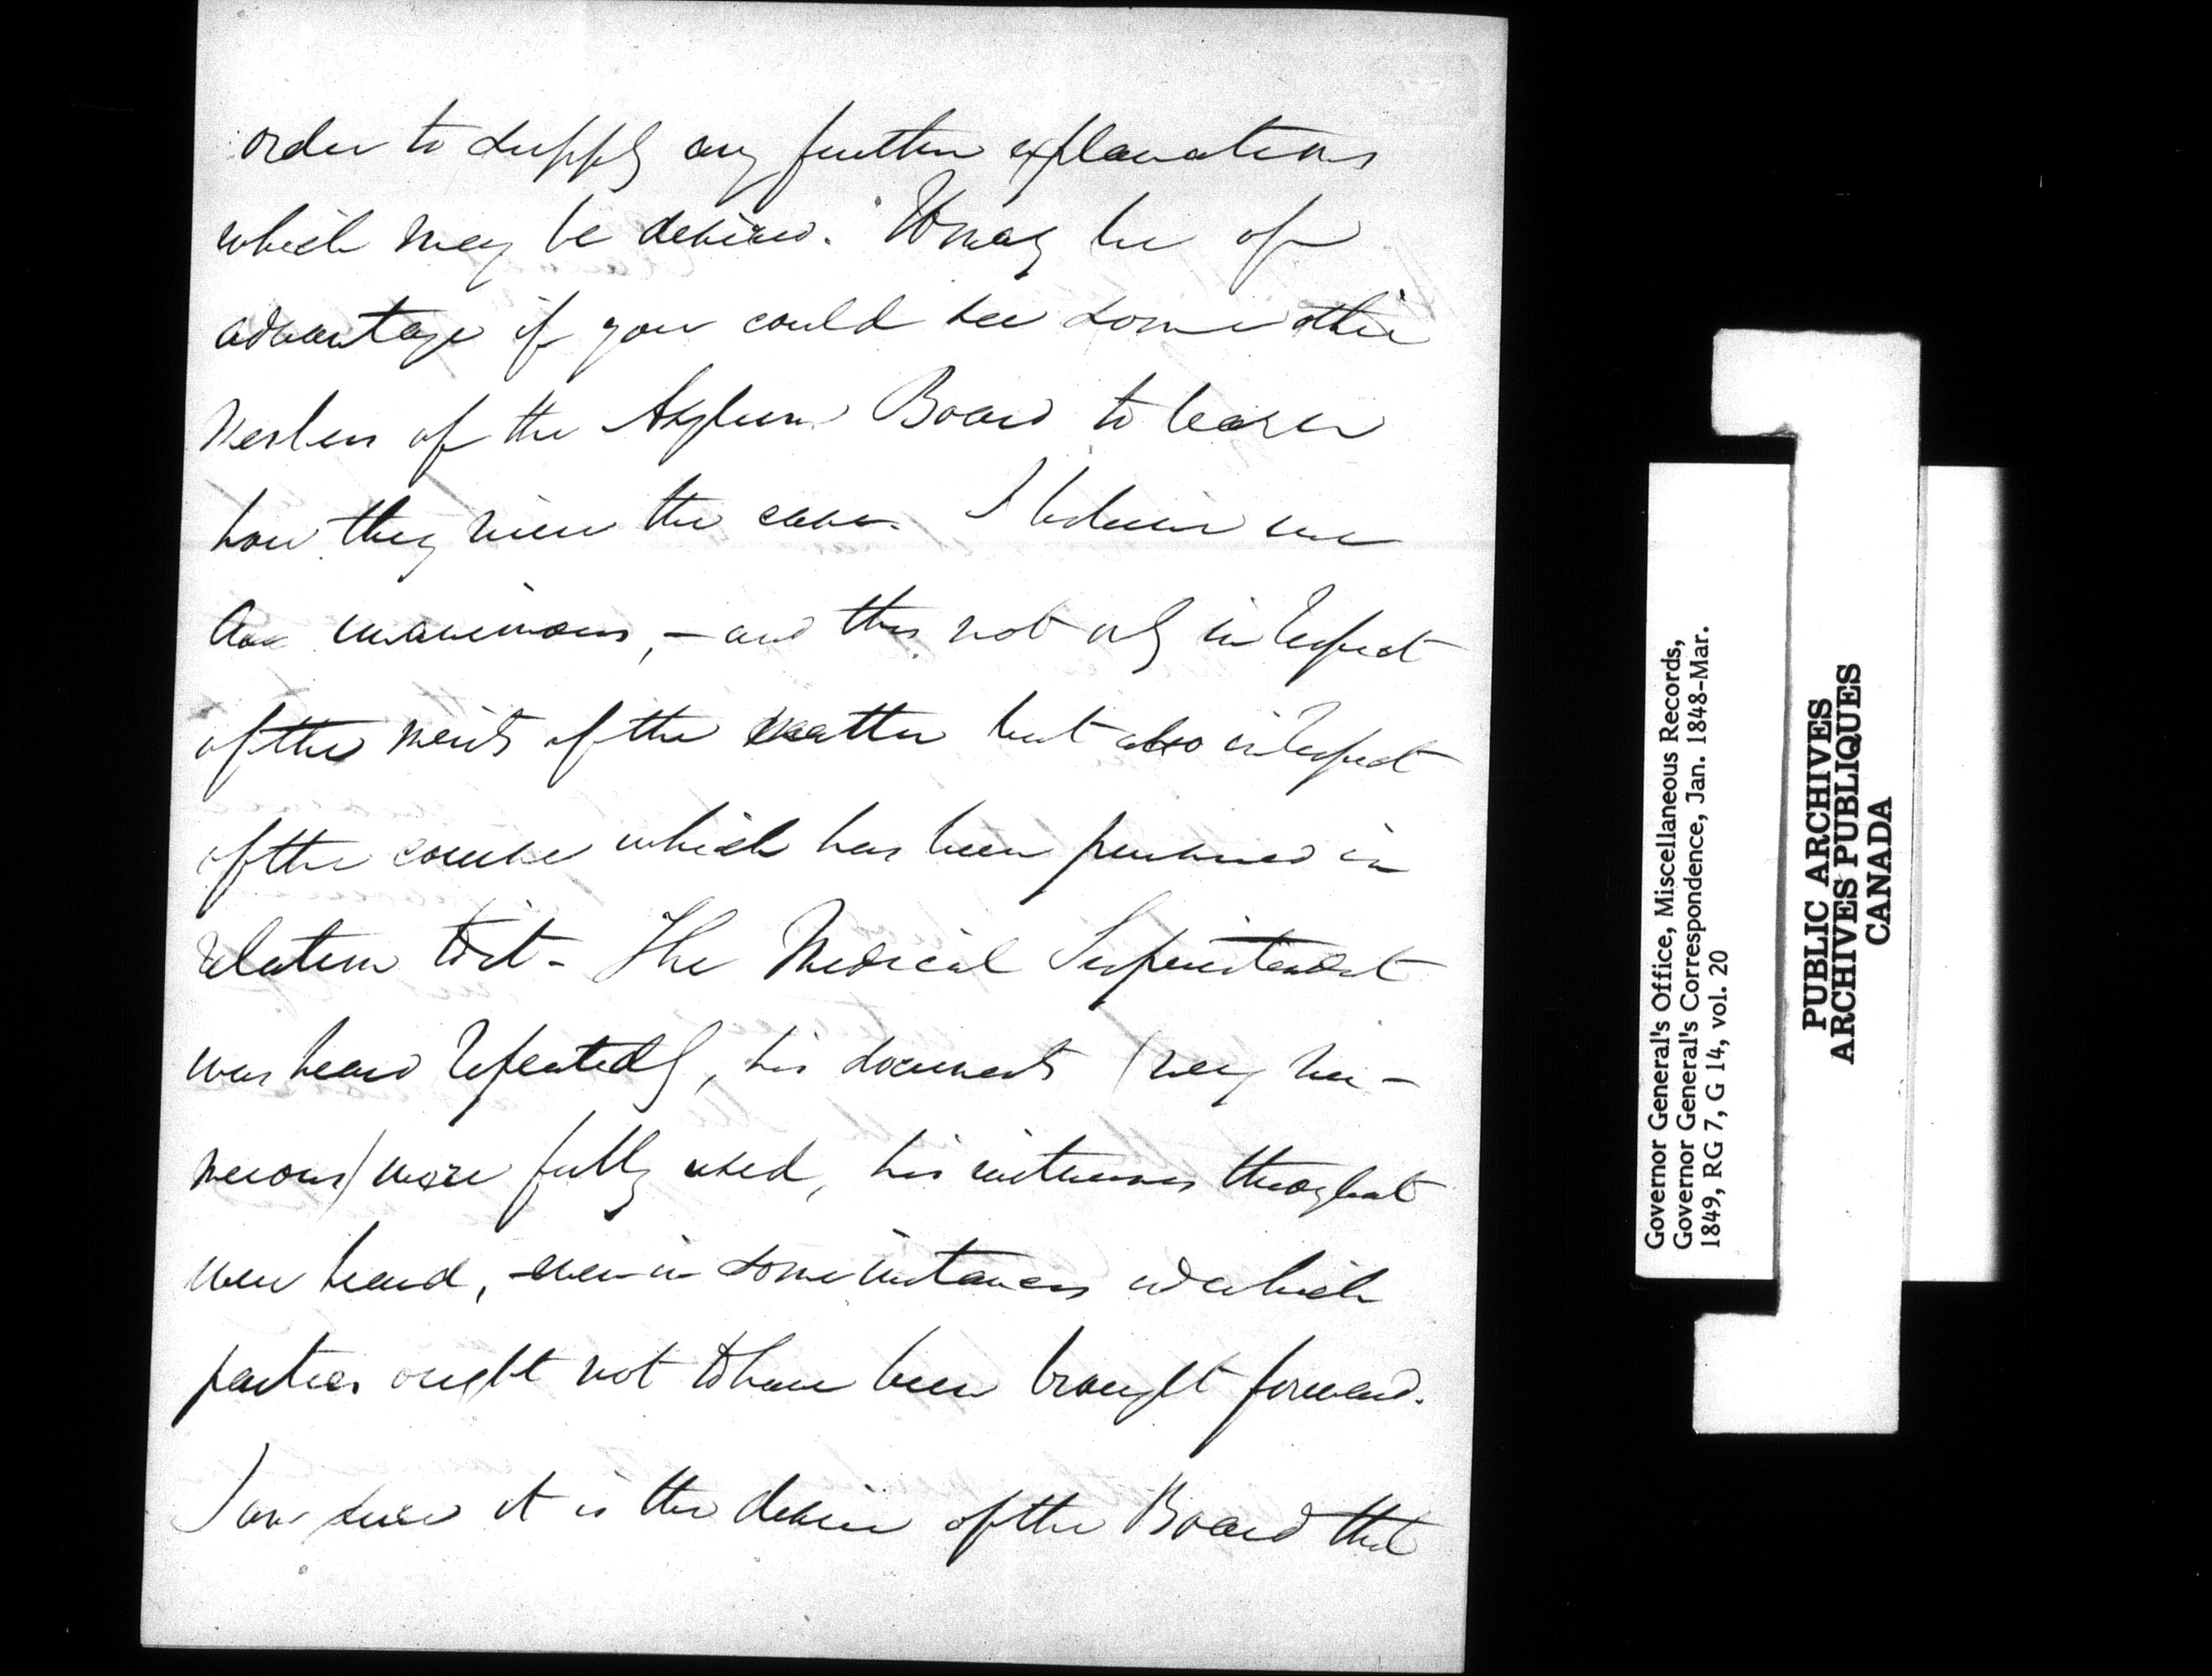 order to supply any further explanations
which may be desired. It may be of
advantage if you could see some other
Members of the Asylum Board to learn
how they view the case. I believe we
are unanimous, – and this not only in respect
of the merits of the matter but also in respect
of the course which has been pursued in
relation to it – The Medical Superintendent
was heard repeatedly, his documents (very nu-
merous) were fully used, his witnesses throughout
were heard, – even in some instances in which
parties ought not to have been brought forward.
I am sure it is the desire of the Board that
Governor General's Office, Miscellaneous Records,
Governor General's Correspondence, Jan. 1848-Mar.
1849, RG 7, G 14, vol. 20
PUBLIC ARCHIVES
ARCHIVES PUBLIQUES
CANADA